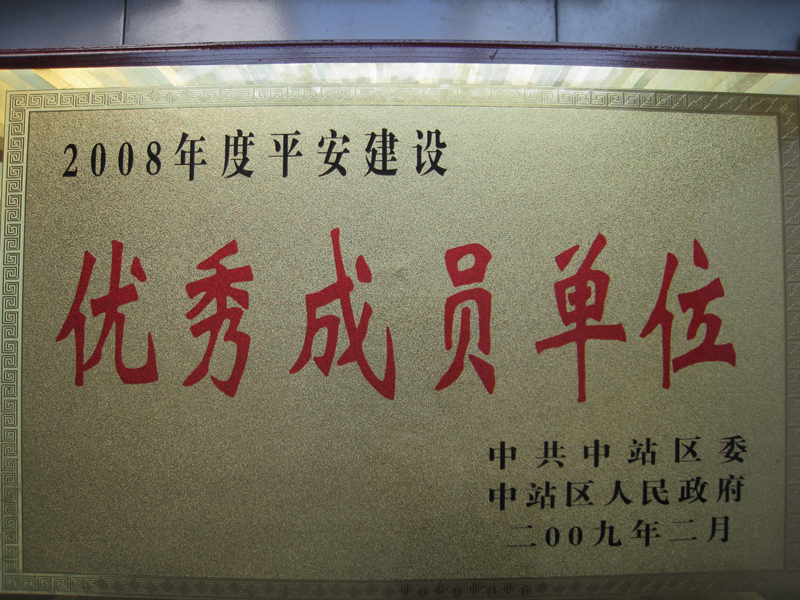 2008年度平安建设
优秀成员单位
中共中站区委
中站区人民政府
二00九年二月